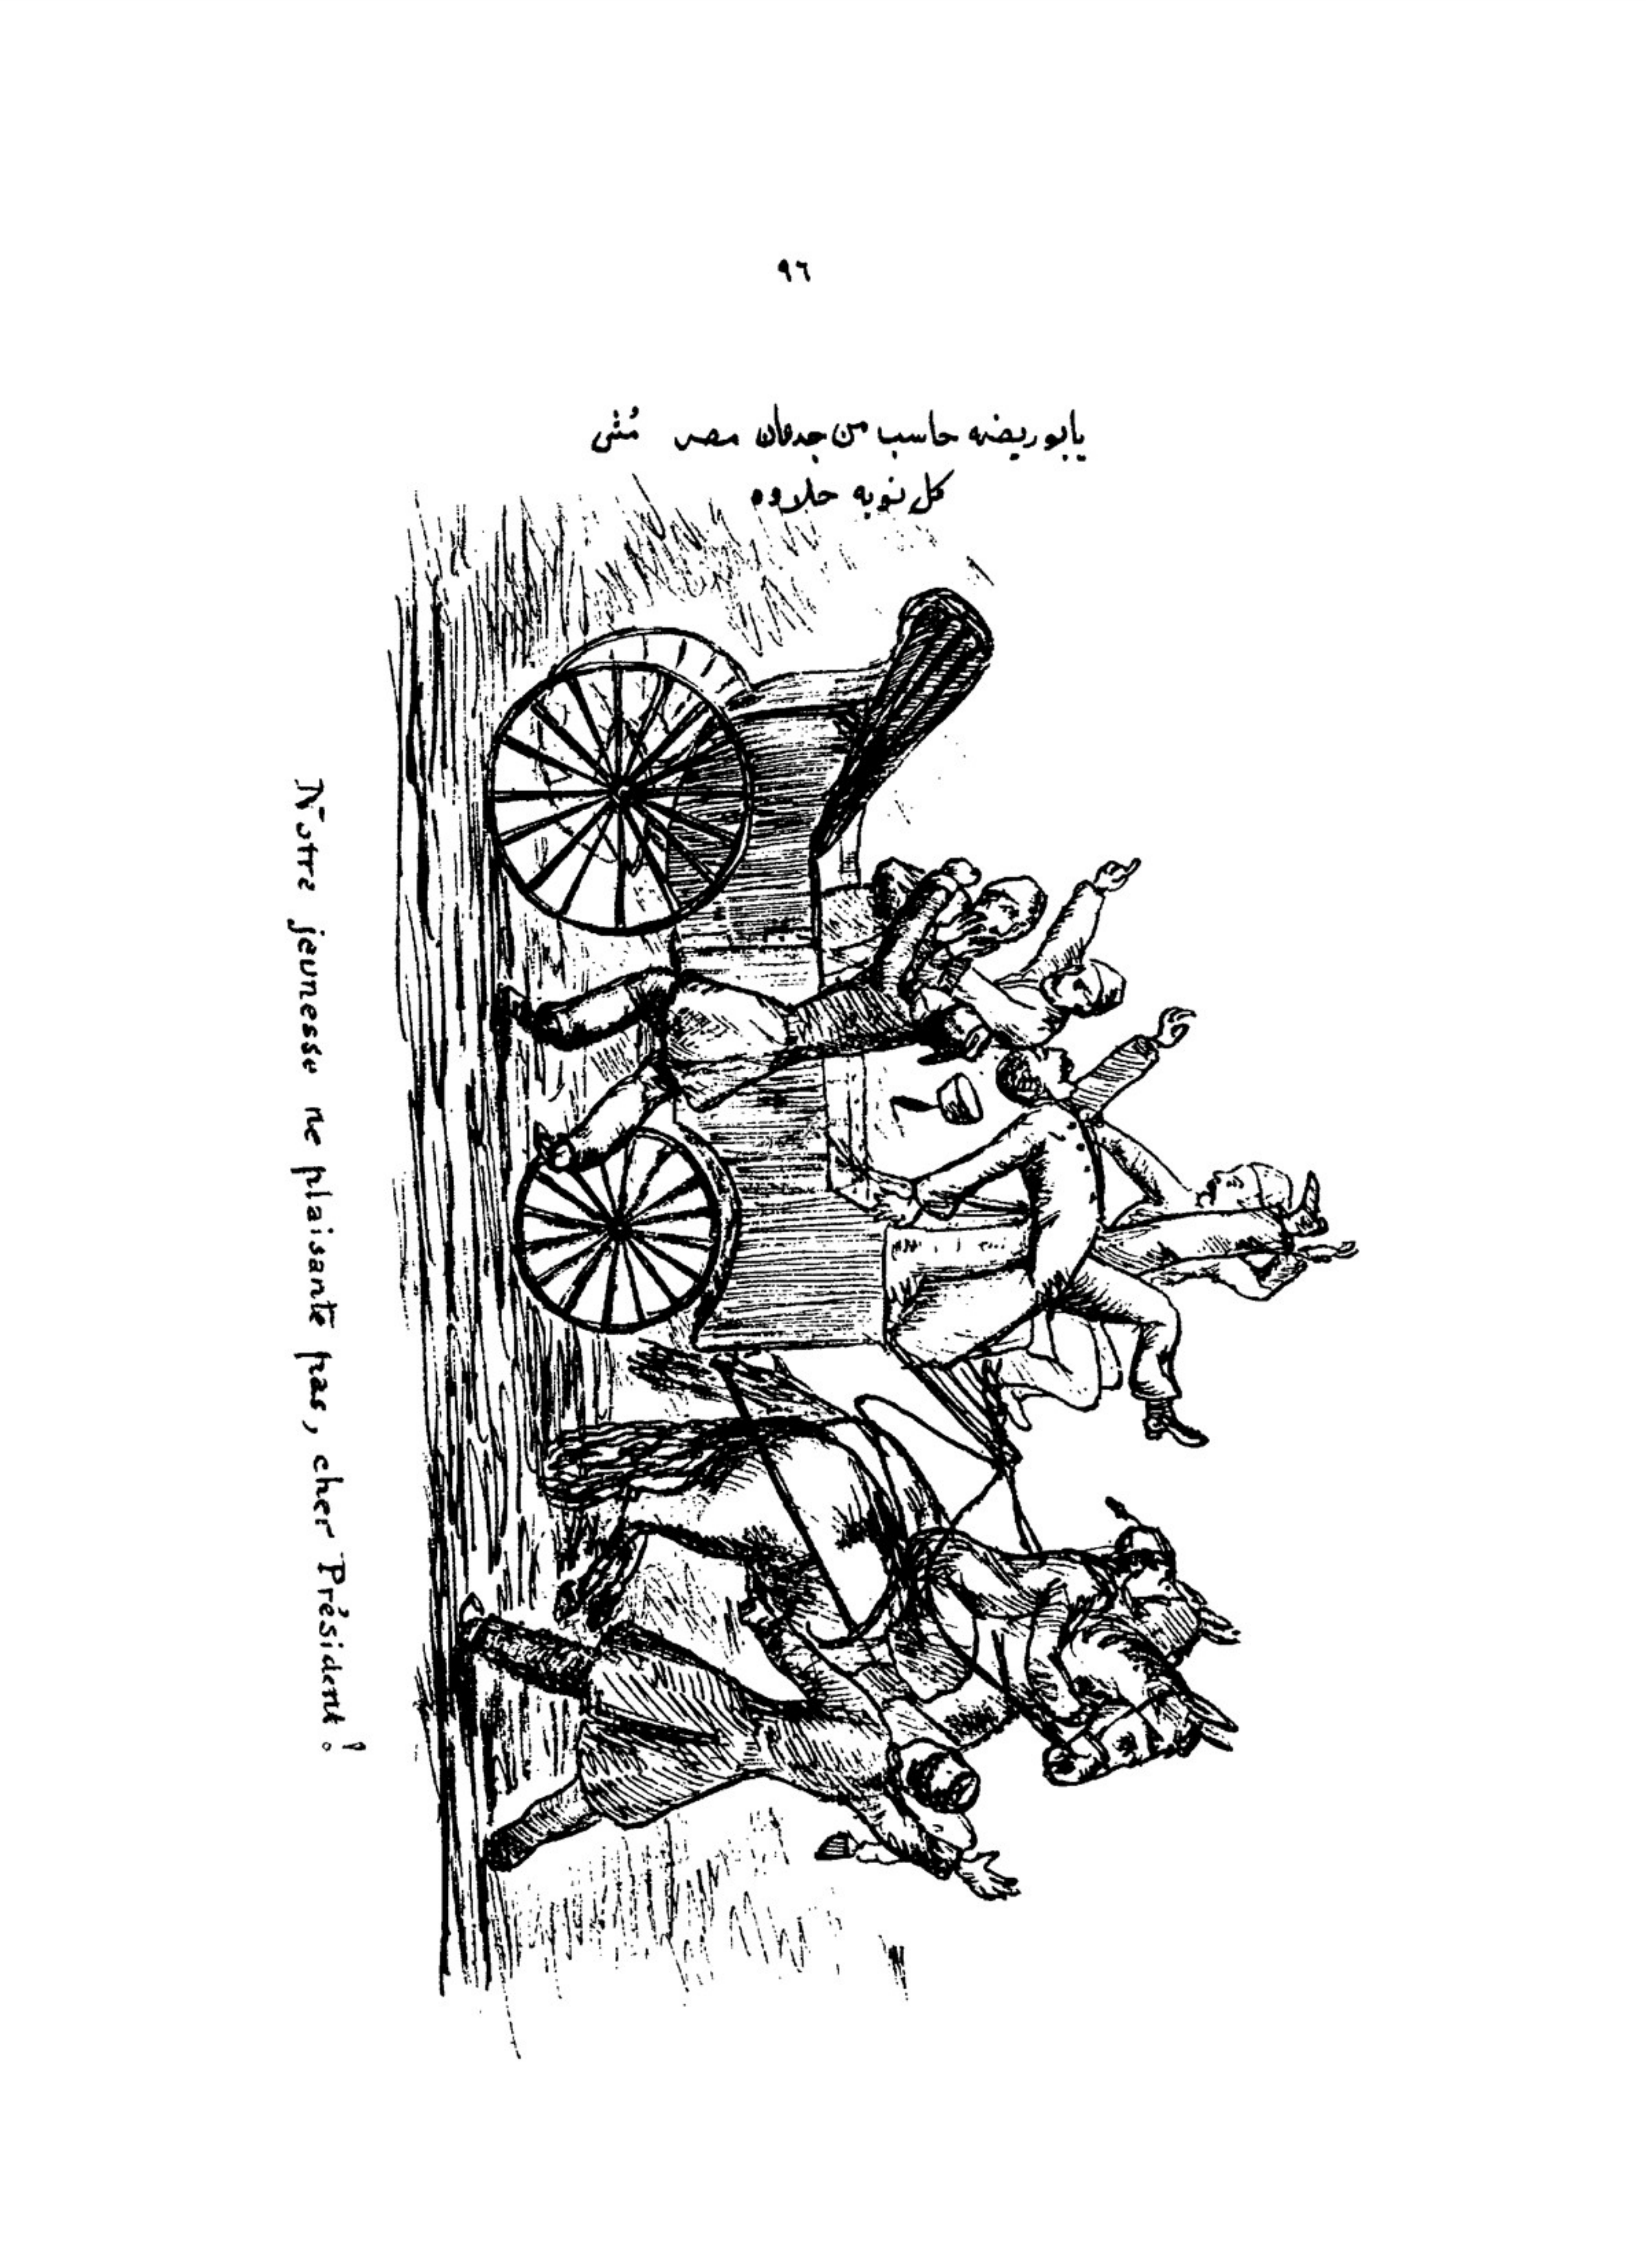 ٩٦
يا بو ريضه حاسب من جدعان مصر مُش
كل نوبه حلاوه
Notre jeunesse ne plaisante pas, cher Président!